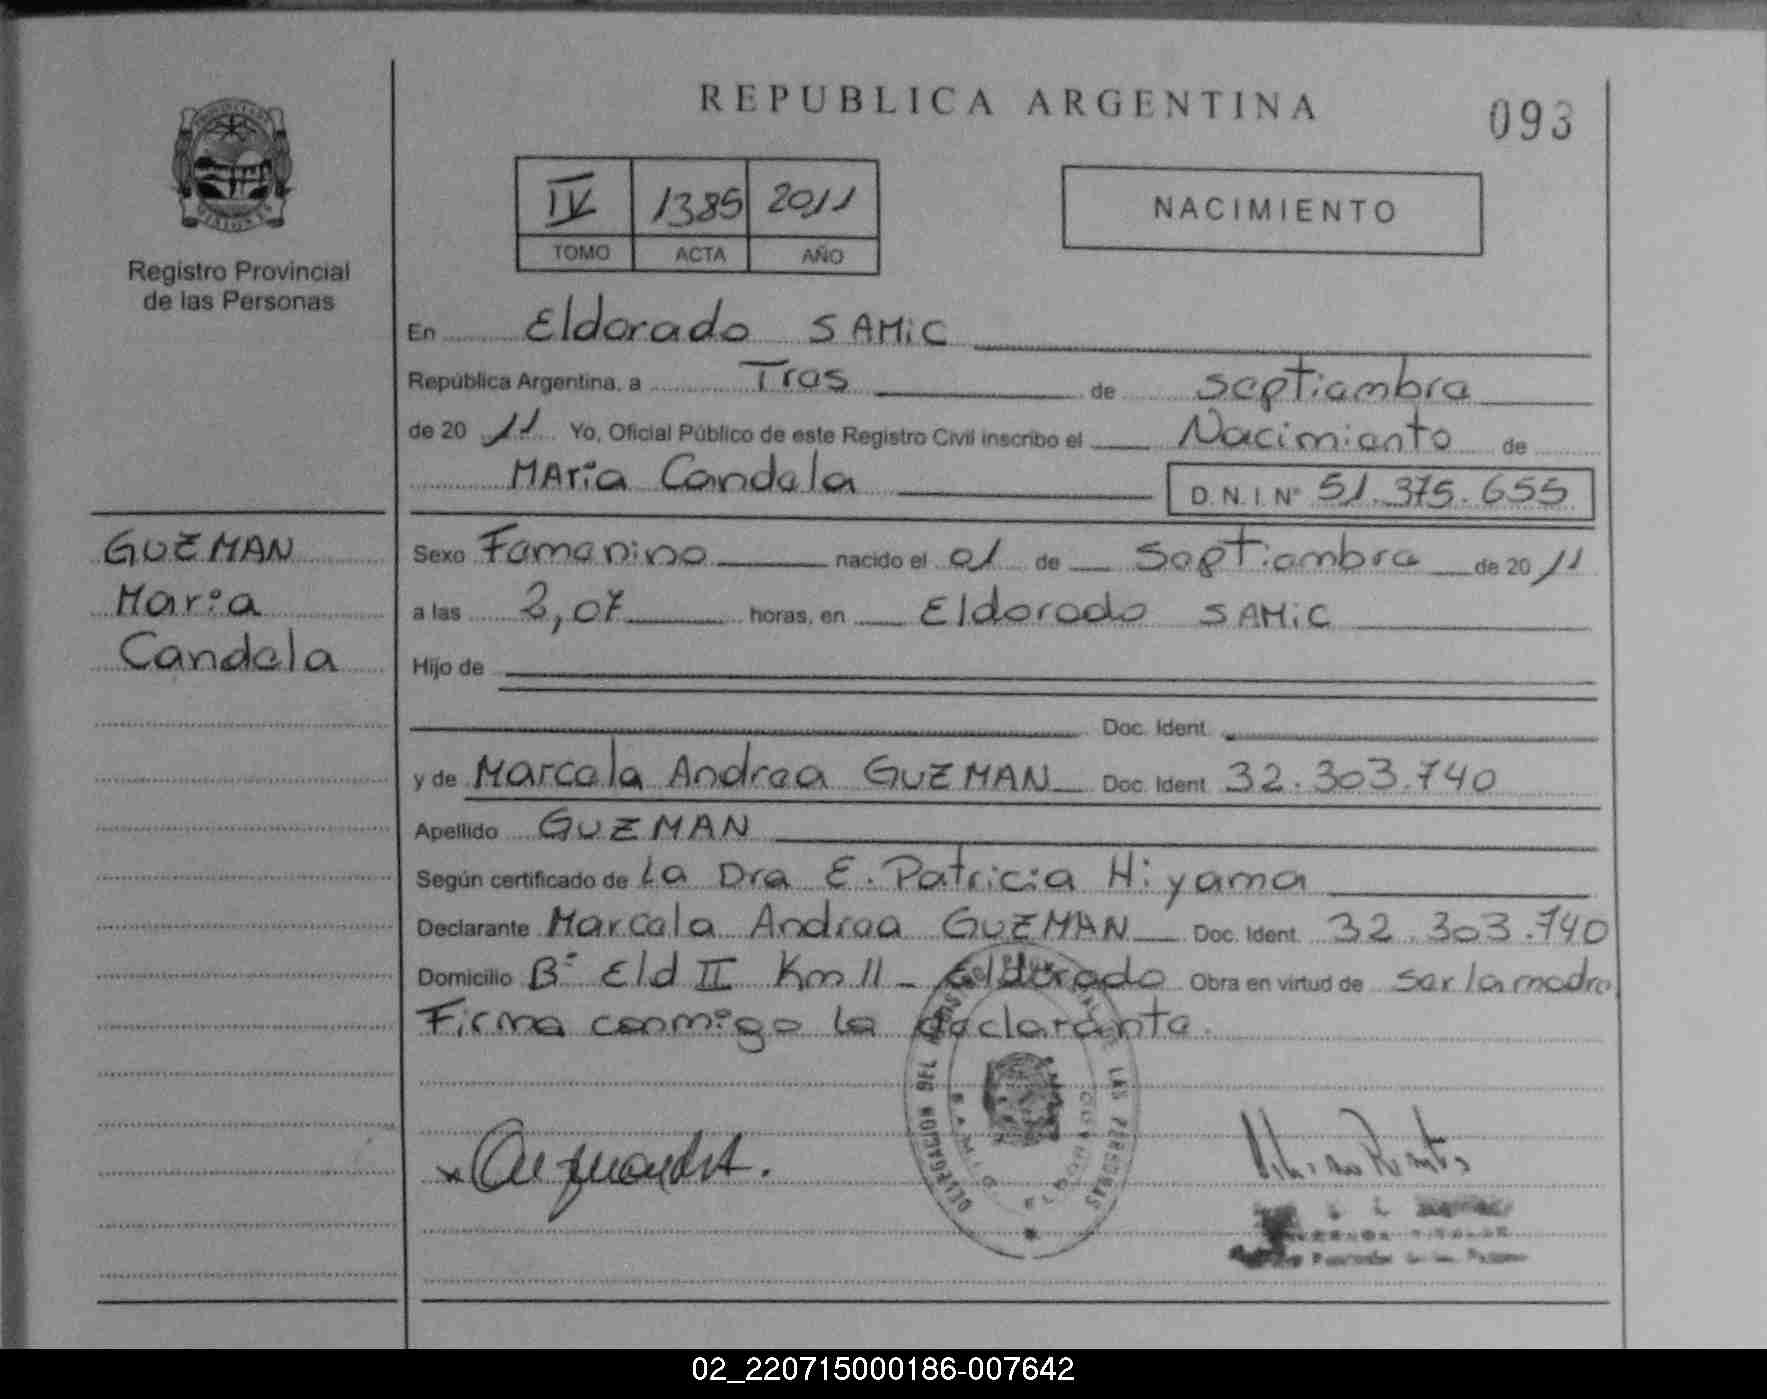 REPUBLICA ARGENTINA
093
IV 1385 2011
TOMO ACTA AÑO
NACIMIENTO
Registro Provincial
de las Personas
En Eldorado SAMiC
República Argentina, a Tres de septiembre
de 20 11 Yo, Oficial Público de este Registro Civil inscribo el Nacimiento de
MAria Candela D.N.I. Nº 51.375.655
GUZMAN
Maria
Candela
Sexo Femenino nacido el 01 de Septiembre de 20 11
a las 2,07 horas, en Eldorado SAMiC
Hijo de
Doc. Ident.
y de Marcela Andrea GUZMAN Doc. Ident. 32.303.740
Apellido GUZMAN
Según certificado de La Dra E. Patricia Hiyama
Declarante Marcela Andrea GUZMAN Doc. Ident. 32.303.740
Domicilio Bº Eld II Km 11 - Eldorado Obra en virtud de ser la madre
Firma conmigo la declarante.
DELEGACION DEL REGISTRO PROVINCIAL DE LAS PERSONAS
02_220715000186-007642